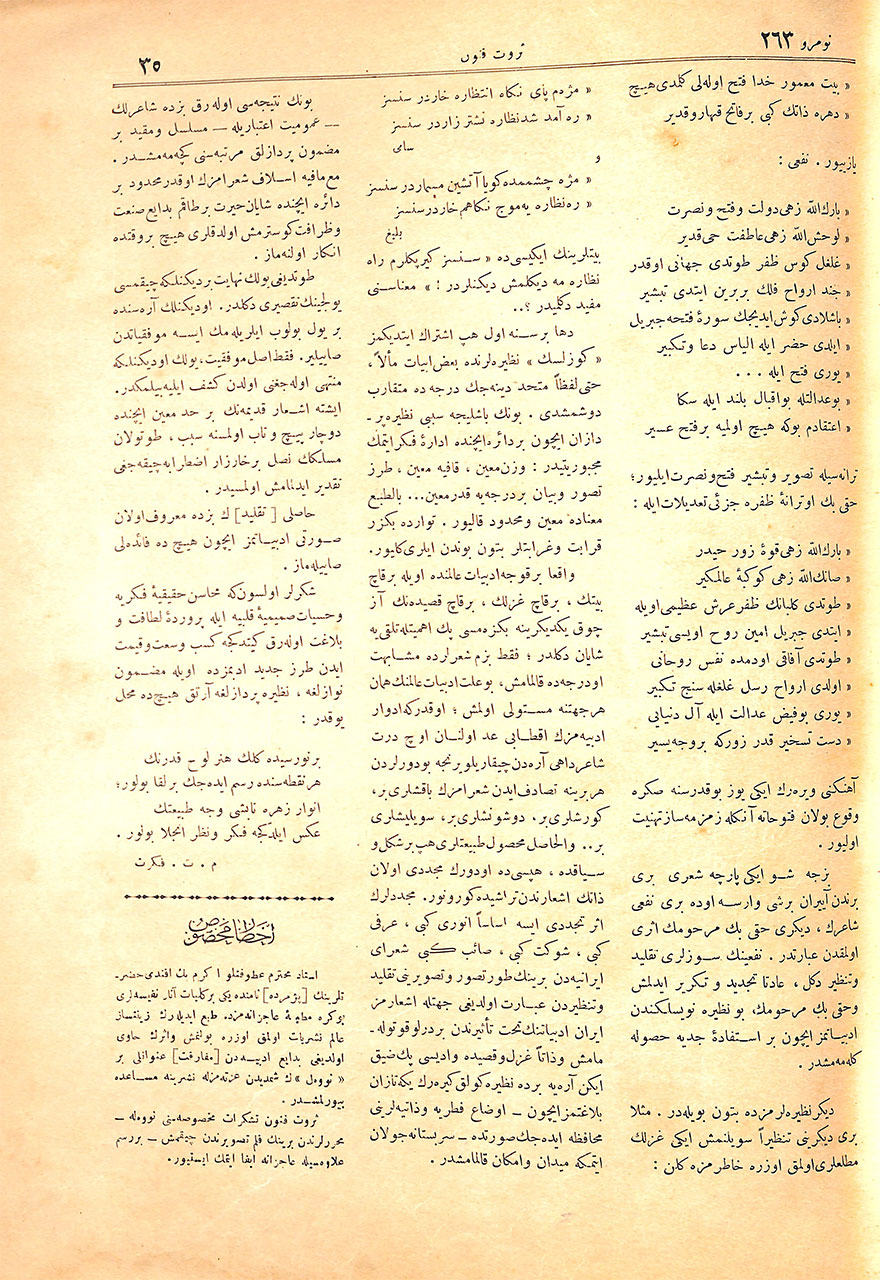 نومرو ٢٦٣
ثروت فنون
٣٥
« بيت معمور خدا فتح اوله‌لى كلمدى هيچ
« دهره ذاتك كبى برفاتح قهار وقدير
يازييور . نفعى :
« بارك‌الله زهى دولت وفتح ونصرت
« لوحش‌الله زهى عاطفت حى قدير
« غلغل كوس ظفر طوتدى جهانى اوقدر
« جند ارواح فلك بربرين ايتدى تبشير
« باشلادى كوش ايديجك سورۀ فتحه جبريل
« ايلدى حضر ايله الياس دعا وتكبير
« يورى فتح ايله . . .
« بوعدالتله بواقبال بلند ايله سكا
« اعتقادم بوكه هيچ اولميه برفتح عسير
ترانه‌سيله تصوير وتبشير فتح ونصرت ايليور؛
حتى بك اوترانۀ ظفره جزئى تعديلات ايله :
« بارك‌الله زهى قوۀ زور حيدر
« صانك‌الله زهى كوكبۀ عالمكير
« طوتدى كلبانك ظفر عرش عظيمى اويله
« ايتدى جبريل امين روح اويسى تبشير
« طوتدى آفاقى اودمده نفس روحانى
« اولدى ارواح رسل غلغله سنج تكبير
« يورى بوفيض عدالت ايله آل دنيايى
« دست تسخير قدر زوركه بروجه يسير
آهنكنى ويره‌رك ايكى يوز بوقدرسنه صكره
وقوع بولان فتوحاته آنكله زمزمه‌ساز تهنيت
اوليور .
بزجه شو ايكى پارچه شعرى برى
برندن آييران برشى وارسه اوده برى نفعى
شاعرك ، ديكرى حتى بك مرحومك اثرى
اولمقدن عبارتدر . نفعينك سوزلرى تقليد
وتنظير دكل ، عادتا تجديد و تكرير ايدلمش
وحتى بك مرحومك، بو نظيره نويسلكندن
ادبياتمز ايچون بر استفادۀ جديه حصوله
كله‌مه‌مشدر .
ديكر نظيره‌لرمزده بتون بويله‌در . مثلا
برى ديكرينى تنظيراً سويلنمش ايكى غزلك
مطلعلرى اولمق اوزره خاطرمزه كلن :
« مژه‌م پاى نكاه انتظاره خاردر سنسز
« ره آمد شد نظاره نشتر زاردر سنسز
سامى
و
« مژه چشممده كويا آتشين مسماردر سنسز
« ره نظاره يه موج نكاهم خاردر سنسز
بليغ
بيتلرينك ايكيسى‌ده « سنسز كيرپيكلرم راه
نظاره مه ديكلمش ديكنلردر ! » معناسنى
مفيد دكليدر ؟..
دها برسنه اول هپ اشتراك ايتديكمز
« كوزلسك » نظيره‌لرنده بعض ابيات مألاً ،
حتى لفظاً متحد دينه‌جك درجه‌ده متقارب
دوشمشدى . بونك باشليجه سببى نظيره‌پر-
دازان ايچون بردائره ايچنده ادارۀ فكر ايتمك
مجبوريتيدر : وزن معين ، قافيه معين ، طرز
تصور وبيان بر درجه‌يه قدر معين... بالطبع
معناده معين ومحدود قاليور . توارده بكزر
قرابت وغرابتلر بتون بوندن ايلرى كليور.
واقعا بر قوجه ادبيات عالمنده اويله برقاچ
بيتك ، برقاچ غزلك ، برقاچ قصيده‌نك آز
چوق يكديكرينه بكزه‌مسى پك اهميتله تلقى‌يه
شايان دكلدر ؛ فقط بزم شعرلرده مشابهت
اودرجه‌ده قالمامش، بو علت ادبيات عالمنك همان
هر جهتنه مستولى اولمش ؛ اوقدركه ادوار
ادبيه‌مزك اقطابى عد اولنان اوچ درت
شاعر داهى آره‌دن چيقاريلوبرنجه بودورلردن
هربرينه تصادف ايدن شعرامزك باقشلرى بر،
كورشلرى بر. دوشونشلرى بر، سويليشلرى
بر.. والحاصل محصول طبيعتلرى هپ برشكل و
سياقده ، هپسى‌ده اودورك مجددى اولان
ذاتك اشعارندن تراشيده كورونور. مجددلرك
اثر تجددى ايسه اساساً انورى كبى ، عرفى
كبى ، شوكت كبى ، صائب كبى شعراى
ايرانيه‌دن برينك طور تصور وتصويرينى تقليد
وتنظيردن عبارت اولديغى جهتله اشعارمز
ايران ادبياتنك تحت تأثيرندن بردرلو قوتوله-
مامش وذاتاً غزل وقصيده واديسى پك ضيق
ايكن آره‌يه برده نظيره كولق كيره‌رك يكه‌تازان
بلاغتمز ايچون – اوضاع فطريه وذاتيه‌لرينى
محافظه ايده‌جك صورتده – سربستانه جولان
ايتمكه ميدان وامكان قالمامشدر .
بونك نتيجه‌سى اوله‌رق بزده شاعرلك
– عموميت اعتباريله – مسلسل ومقيد بر
مضمون پردازلق مرتبه‌سنى كچه‌مه‌مشدر .
مع مافيه اسلاف شعرامزك اوقدر محدود بر
دائره ايچنده شايان حيرت برطاقم بدايع صنعت
وظرافت كوسترمش اولدقلرى هيچ بروقتده
انكار اولنه‌ماز .
طوتديغى يولك نهايت برديكنلكه چيقمسى
يولجينك تقصيرى دكلدر. اوديكنلك آره‌سنده
بر يول بولوب ايلريله‌مك ايسه موفقياتدن
صاييلير. فقط اصل موفقيت، يولك اوديكنلكه
منتهى اوله‌جغنى اولدن كشف ايليه‌بيلمكدر.
ايشته اشعار قديمه‌نك بر حد معين ايچنده
دوچار پيچ و تاب اولمسنه سبب ، طوتولان
مسلكك نصل برخارزار اضطرابه چيقه‌جغى
تقدير ايدلمامش اولمسيدر .
حاصلى [ تقليد ] ك بزده معروف اولان
صورتى ادبياتمز ايچون هيچ ده فائده‌لى
صاييله‌ماز .
شكرلر اولسون‌كه محاسن حقيقيۀ فكريه
وحسيات صميميۀ قلبيه ايله پروردۀ لطافت و
بلاغت اوله‌رق كيتدكجه كسب وسعت وقيمت
ايدن طرز جديد ادبمزده اويله مضمون
نوازلغه ، نظيره پردازلغه آرتق هيچ‌ده محل
يوقدر :
برنورسيده كلك هنر لوح قدرتك
هر نقطه‌سنده رسم ايده‌جك بر لقا بولور؛
انوار زهره تابشى وجه طبيعتك
عكس ايلدكجه فكر ونظر انجلا بولور .
م . ت . فكرت
اخطار مخصوص
استاد محترم عطوفتلو اكرم بك افندى حضر-
تلرينك [پژمرده] نامنده‌كى بركليات آثار نفيسه‌لرى
بوكره مطبعۀ عاجزانه‌مزده طبع ايديله‌رك زينتساز
عالم نشريات اولمق اوزره بولنمش واثرك حاوى
اولديغى بدايع ادبيه‌دن [مفارقت] عنوانلى بر
« نوول »ك شمديدن غزته‌مزله نشرينه مساعده
بيورلمشدر .
ثروت فنون تشكرات مخصوصه‌سنى نووله –
محررلرندن برينك قلم تصويرندن چيقمش – بررسم
علاوه‌سيله عاجزانه ايفا ايتمك ايستيور.